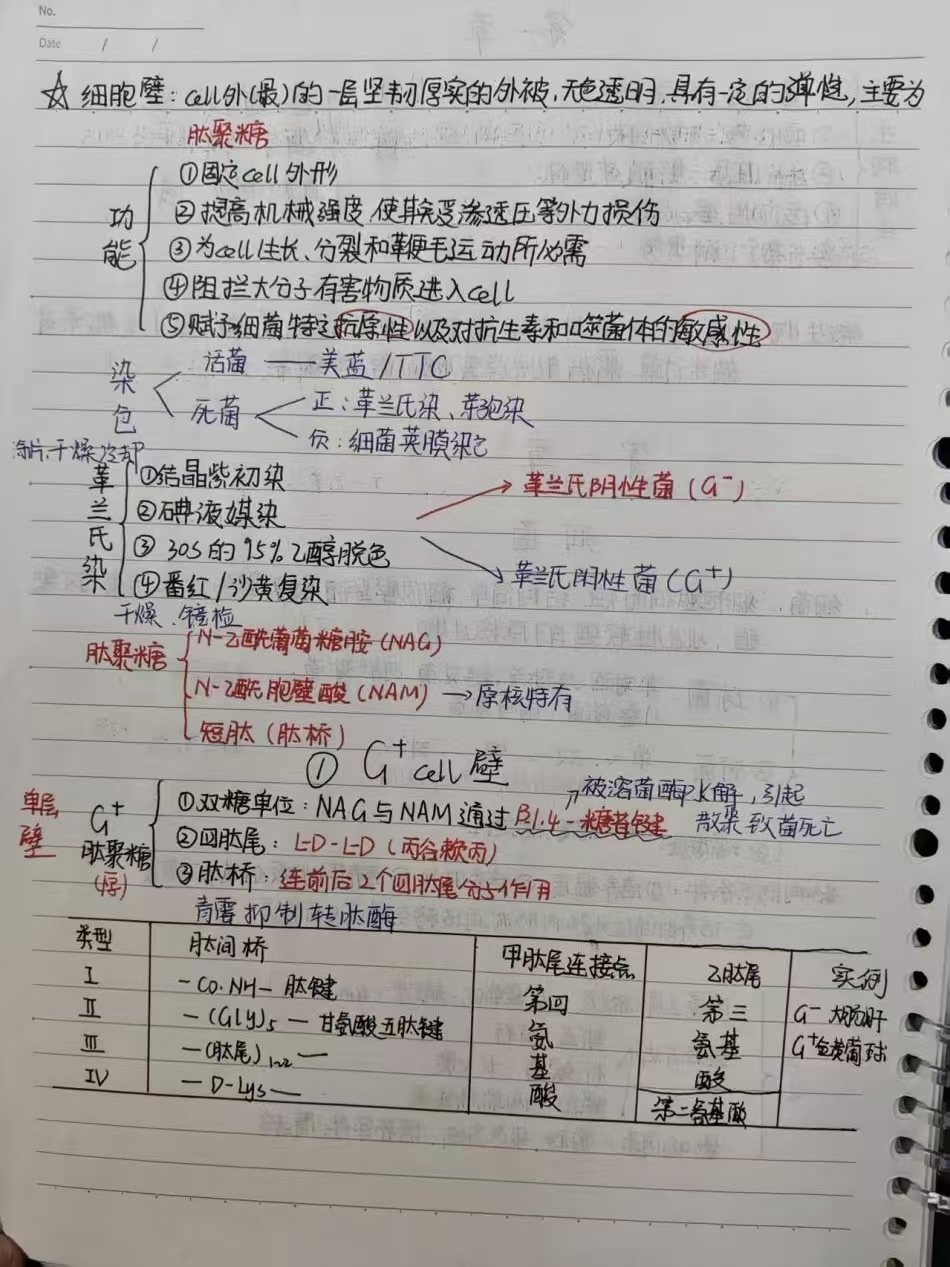 No.
Date / /
☆ 细胞壁：cell外(最)的一层坚韧厚实的外被，无色透明，具有一定的弹性，主要为
肽聚糖
功能
①固定cell外形
②提高机械强度，使其免受渗透压等外力损伤
③为cell生长、分裂和鞭毛运动所必需
④阻拦大分子有害物质进入cell
⑤赋予细菌特定抗原性以及对抗生素和噬菌体的敏感性
染色
活菌——美蓝/TTC
死菌
正：革兰氏染、芽孢染
负：细菌荚膜染色
涂片、干燥冷却
革兰氏染
①结晶紫初染
②碘液媒染
③ 30S的95%乙醇脱色
④番红/沙黄复染
革兰氏阴性菌(G⁻)
革兰氏阴性菌(G⁺)
干燥、镜检
肽聚糖
N-乙酰葡萄糖胺(NAG)
N-乙酰胞壁酸(NAM) → 原核特有
短肽(肽桥)
① G⁺ cell 壁
单层壁
G⁺肽聚糖(层)
①双糖单位：NAG与NAM通过β.1.4-糖苷键
被溶菌酶水解，引起
散聚致菌死亡
②四肽尾：L-D-L-D(丙谷赖丙)
③肽桥：连前后2个四肽尾分子作用
青霉抑制转肽酶
类型 肽间桥 甲肽尾连接点 乙肽尾 实例
I -CO·NH- 肽键 第四 第三 G⁻ 大肠杆
II -(Gly)₅- 甘氨酸五肽键 氨 氨基 G⁺金黄葡球
III -(肽尾)₁₋₂- 基 酸
IV -D-Lys- 酸 第二氨基酸